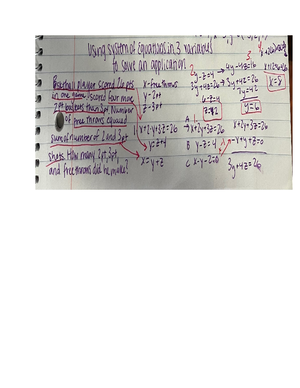 Using system of equations in 3 variables
to solve an application!
Basketball player scored 26 pts
in one game. Scored four more
2pt baskets than 3pt. Number
of free throws equaled
sum of number of 2 and 3pt
shots. How many 2pt, 3pt,
and free throws did he make?
x-free throws
y-2pt
z-3pt
x+2y+3z=26
y=z+4
x=y+z
A x+2y+3z=26
B y-z=4
C x-y-z=0
y-z=4 → 4y-4z=16
3y+4z=26 → 3y+4z=26
7y=42
y=6
6-z=4
z=2
x+2y+3z=26
-x+y+z=0
3y+4z=26
x=8